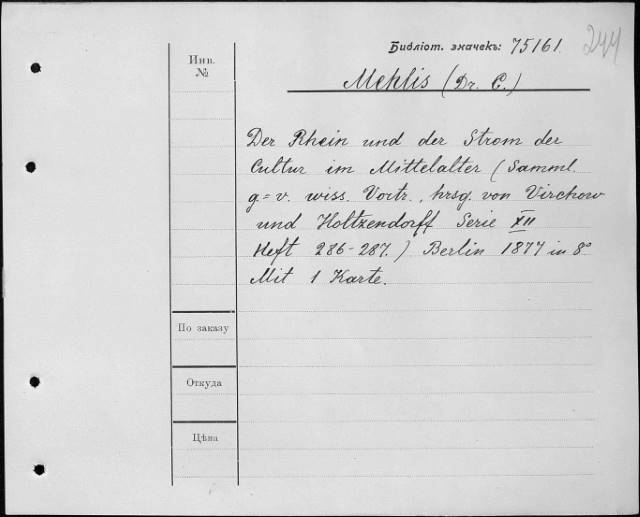 Библіот. значекъ: 75161.
244
Инв.
№
Mehlis (Dr. C.)
Der Rhein und der Strom der
Cultur im Mittelalter (Samml.
g=v. wiss. Vortr., hrsg. von Virchow
und Holtzendorff Serie XII
Heft 286-287.) Berlin 1877 in 8°
Mit 1 Karte.
По заказу
Откуда
Цѣна